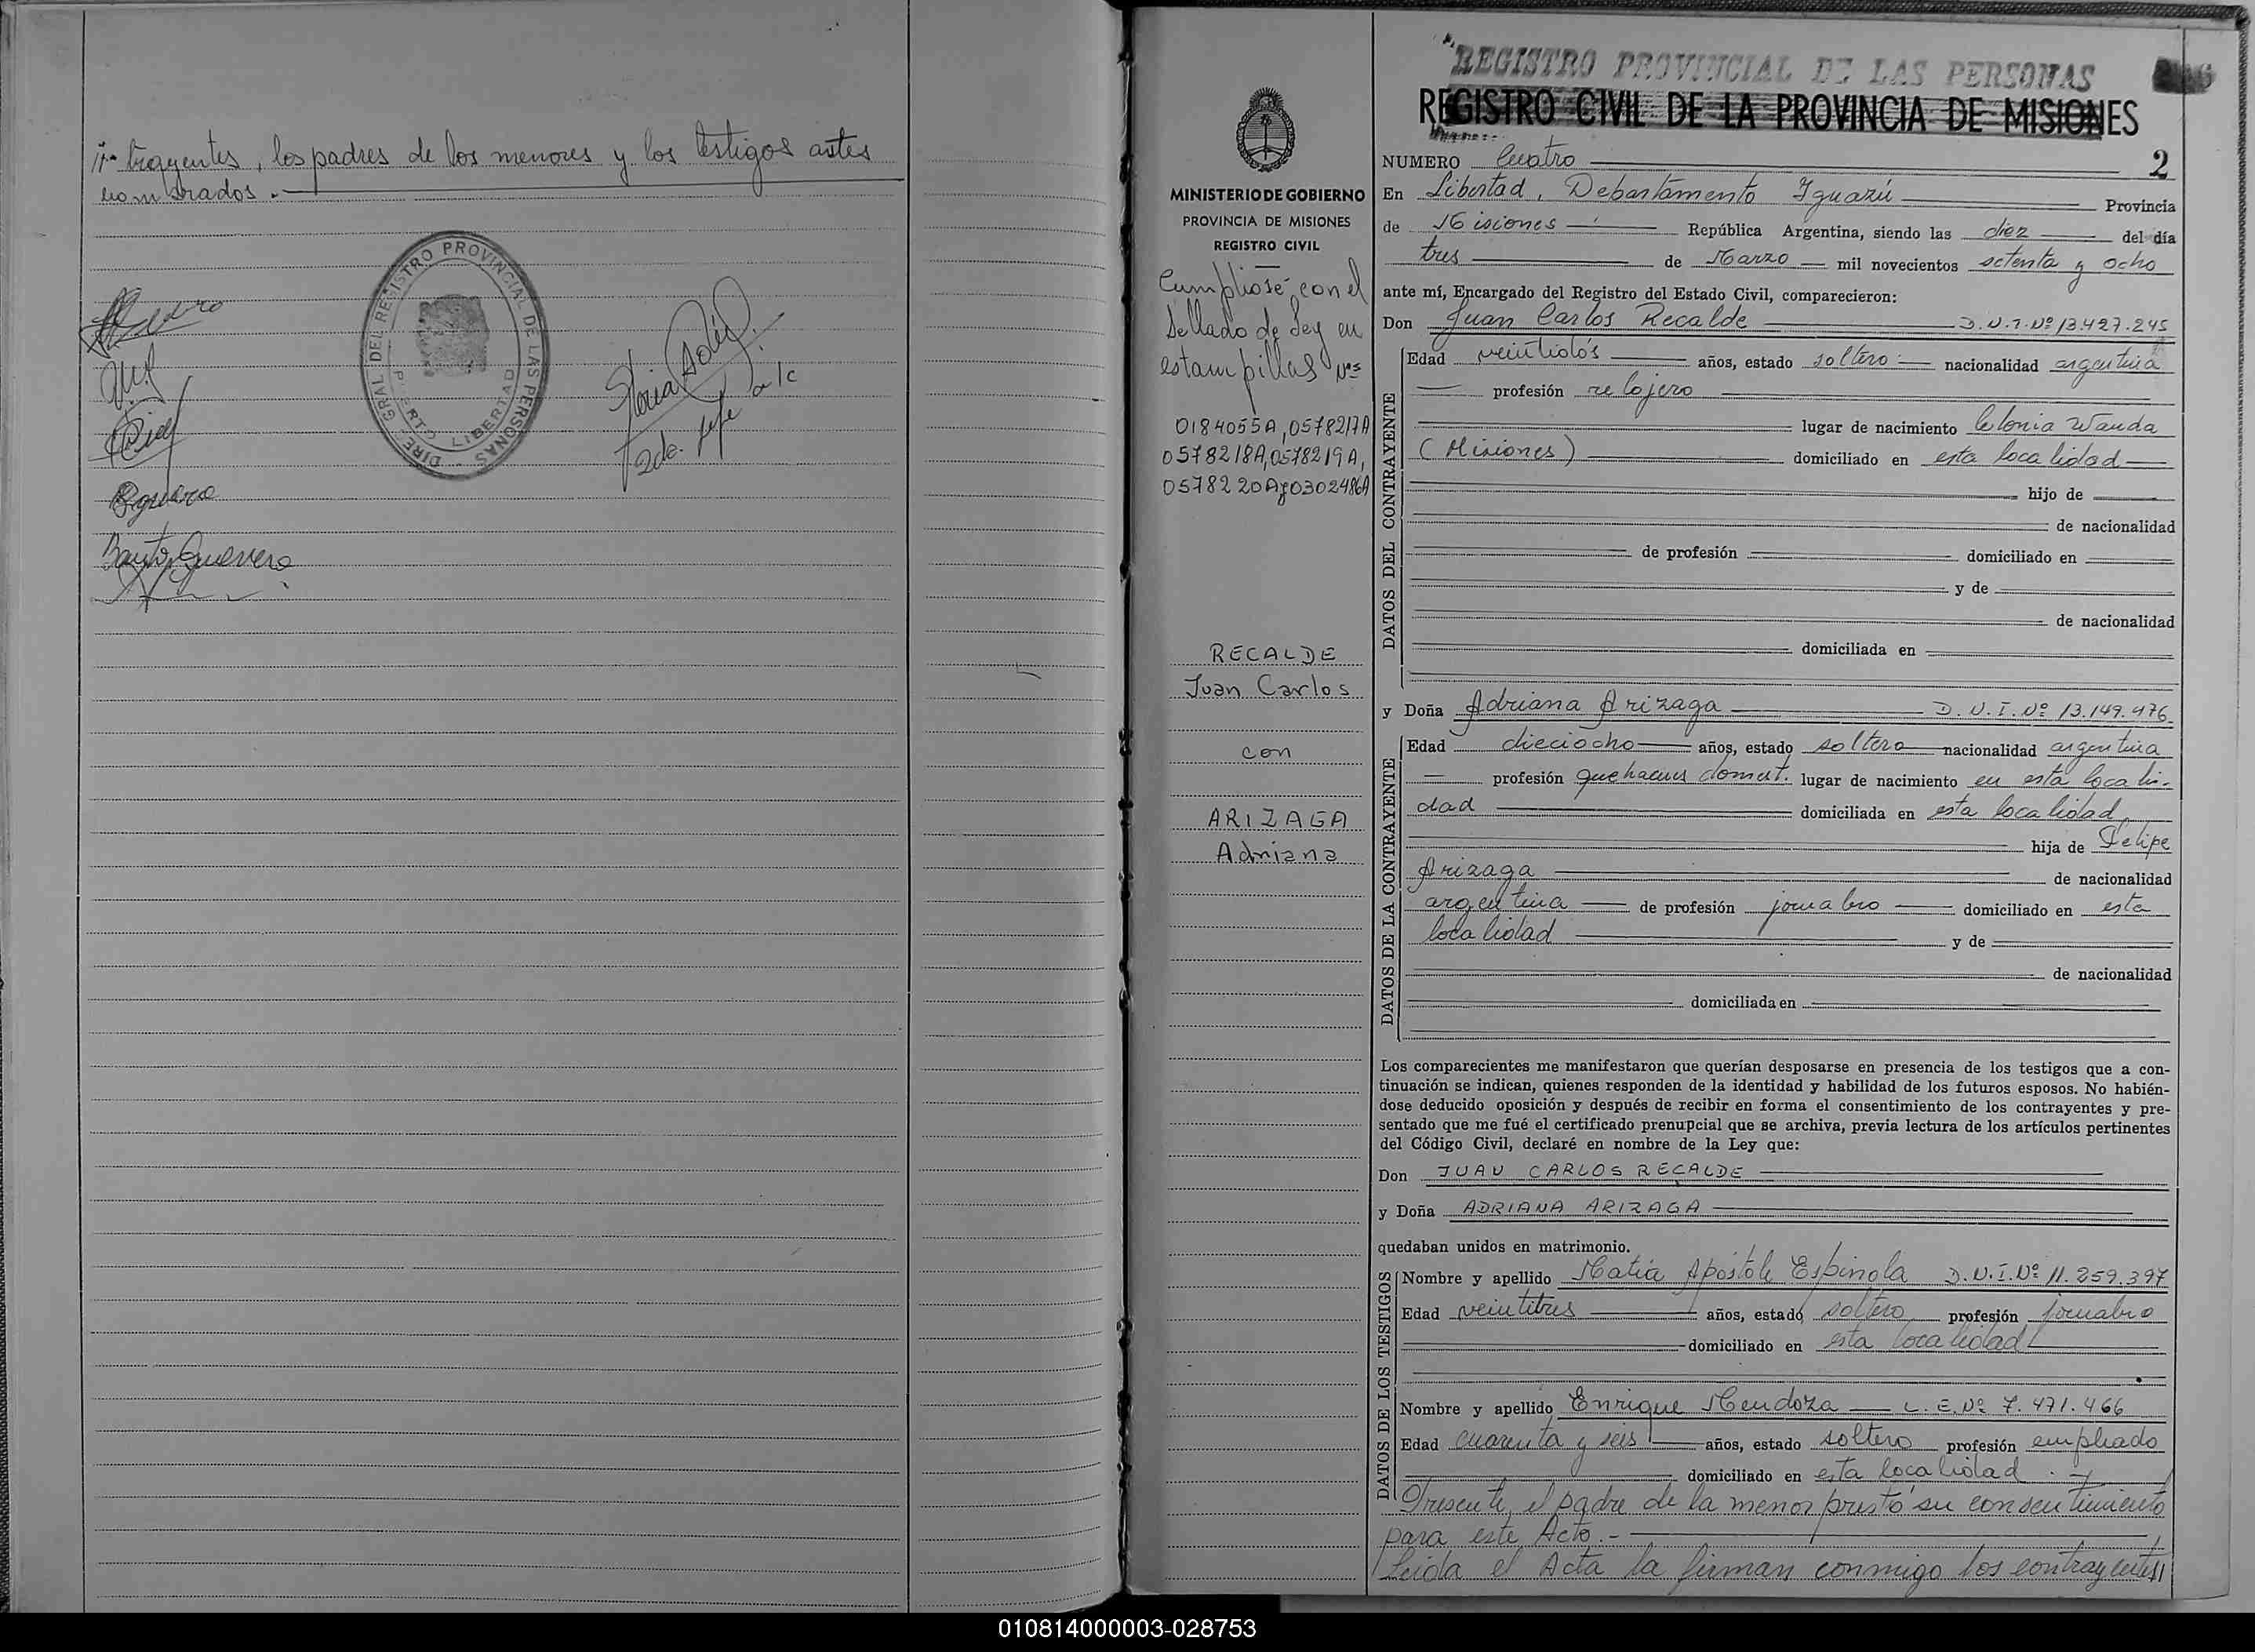 trayentes, los padres de los menores y los testigos antes
nombrados.-
DIREC. GRAL. DEL REGISTRO PROVINCIAL DE LAS PERSONAS
PUERTO LIBERTAD
2da. Jefe a/c
MINISTERIO DE GOBIERNO
PROVINCIA DE MISIONES
REGISTRO CIVIL
Cumpliose con el
Sellado de Ley en
estampillas Nos
0184055A, 0578217A
0578218A, 0578219A,
0578220A y 0302486A
RECALDE
Juan Carlos
con
ARIZAGA
Adriana
REGISTRO PROVINCIAL DE LAS PERSONAS
REGISTRO CIVIL DE LA PROVINCIA DE MISIONES
NUMERO Cuatro 2
En Libertad, Departamento Iguazú Provincia
de Misiones República Argentina, siendo las diez del día
tres de Marzo mil novecientos setenta y ocho
ante mí, Encargado del Registro del Estado Civil, comparecieron:
Don Juan Carlos Recalde D.N.I. Nº 13.427.245
DATOS DEL CONTRAYENTE
Edad veintidós años, estado soltero nacionalidad argentina
profesión relojero
lugar de nacimiento Colonia Wanda
(Misiones) domiciliado en esta localidad
hijo de
de nacionalidad
de profesión domiciliado en
y de
de nacionalidad
domiciliada en
y Doña Adriana Arizaga D.N.I. Nº 13.149.476
DATOS DE LA CONTRAYENTE
Edad dieciocho años, estado soltera nacionalidad argentina
profesión quehaceres domest. lugar de nacimiento en esta locali-
dad domiciliada en esta localidad
hija de Felipe
Arizaga de nacionalidad
argentina de profesión jornalero domiciliado en esta
localidad y de
de nacionalidad
domiciliada en
Los comparecientes me manifestaron que querían desposarse en presencia de los testigos que a con-
tinuación se indican, quienes responden de la identidad y habilidad de los futuros esposos. No habién-
dose deducido oposición y después de recibir en forma el consentimiento de los contrayentes y pre-
sentado que me fué el certificado prenupcial que se archiva, previa lectura de los artículos pertinentes
del Código Civil, declaré en nombre de la Ley que:
Don JUAN CARLOS RECALDE
y Doña ADRIANA ARIZAGA
quedaban unidos en matrimonio.
DATOS DE LOS TESTIGOS
Nombre y apellido Matía Apóstole Espinola D.N.I. Nº 11.259.397
Edad veintitres años, estado soltero profesión jornalero
domiciliado en esta localidad
Nombre y apellido Enrique Mendoza L.E. Nº 7.471.466
Edad cuarenta y seis años, estado soltero profesión empleado
domiciliado en esta localidad.
Presente, el padre de la menor prestó su consentimiento
para este Acto.-
Leida el Acta la firman conmigo los contrayentes
010814000003-028753